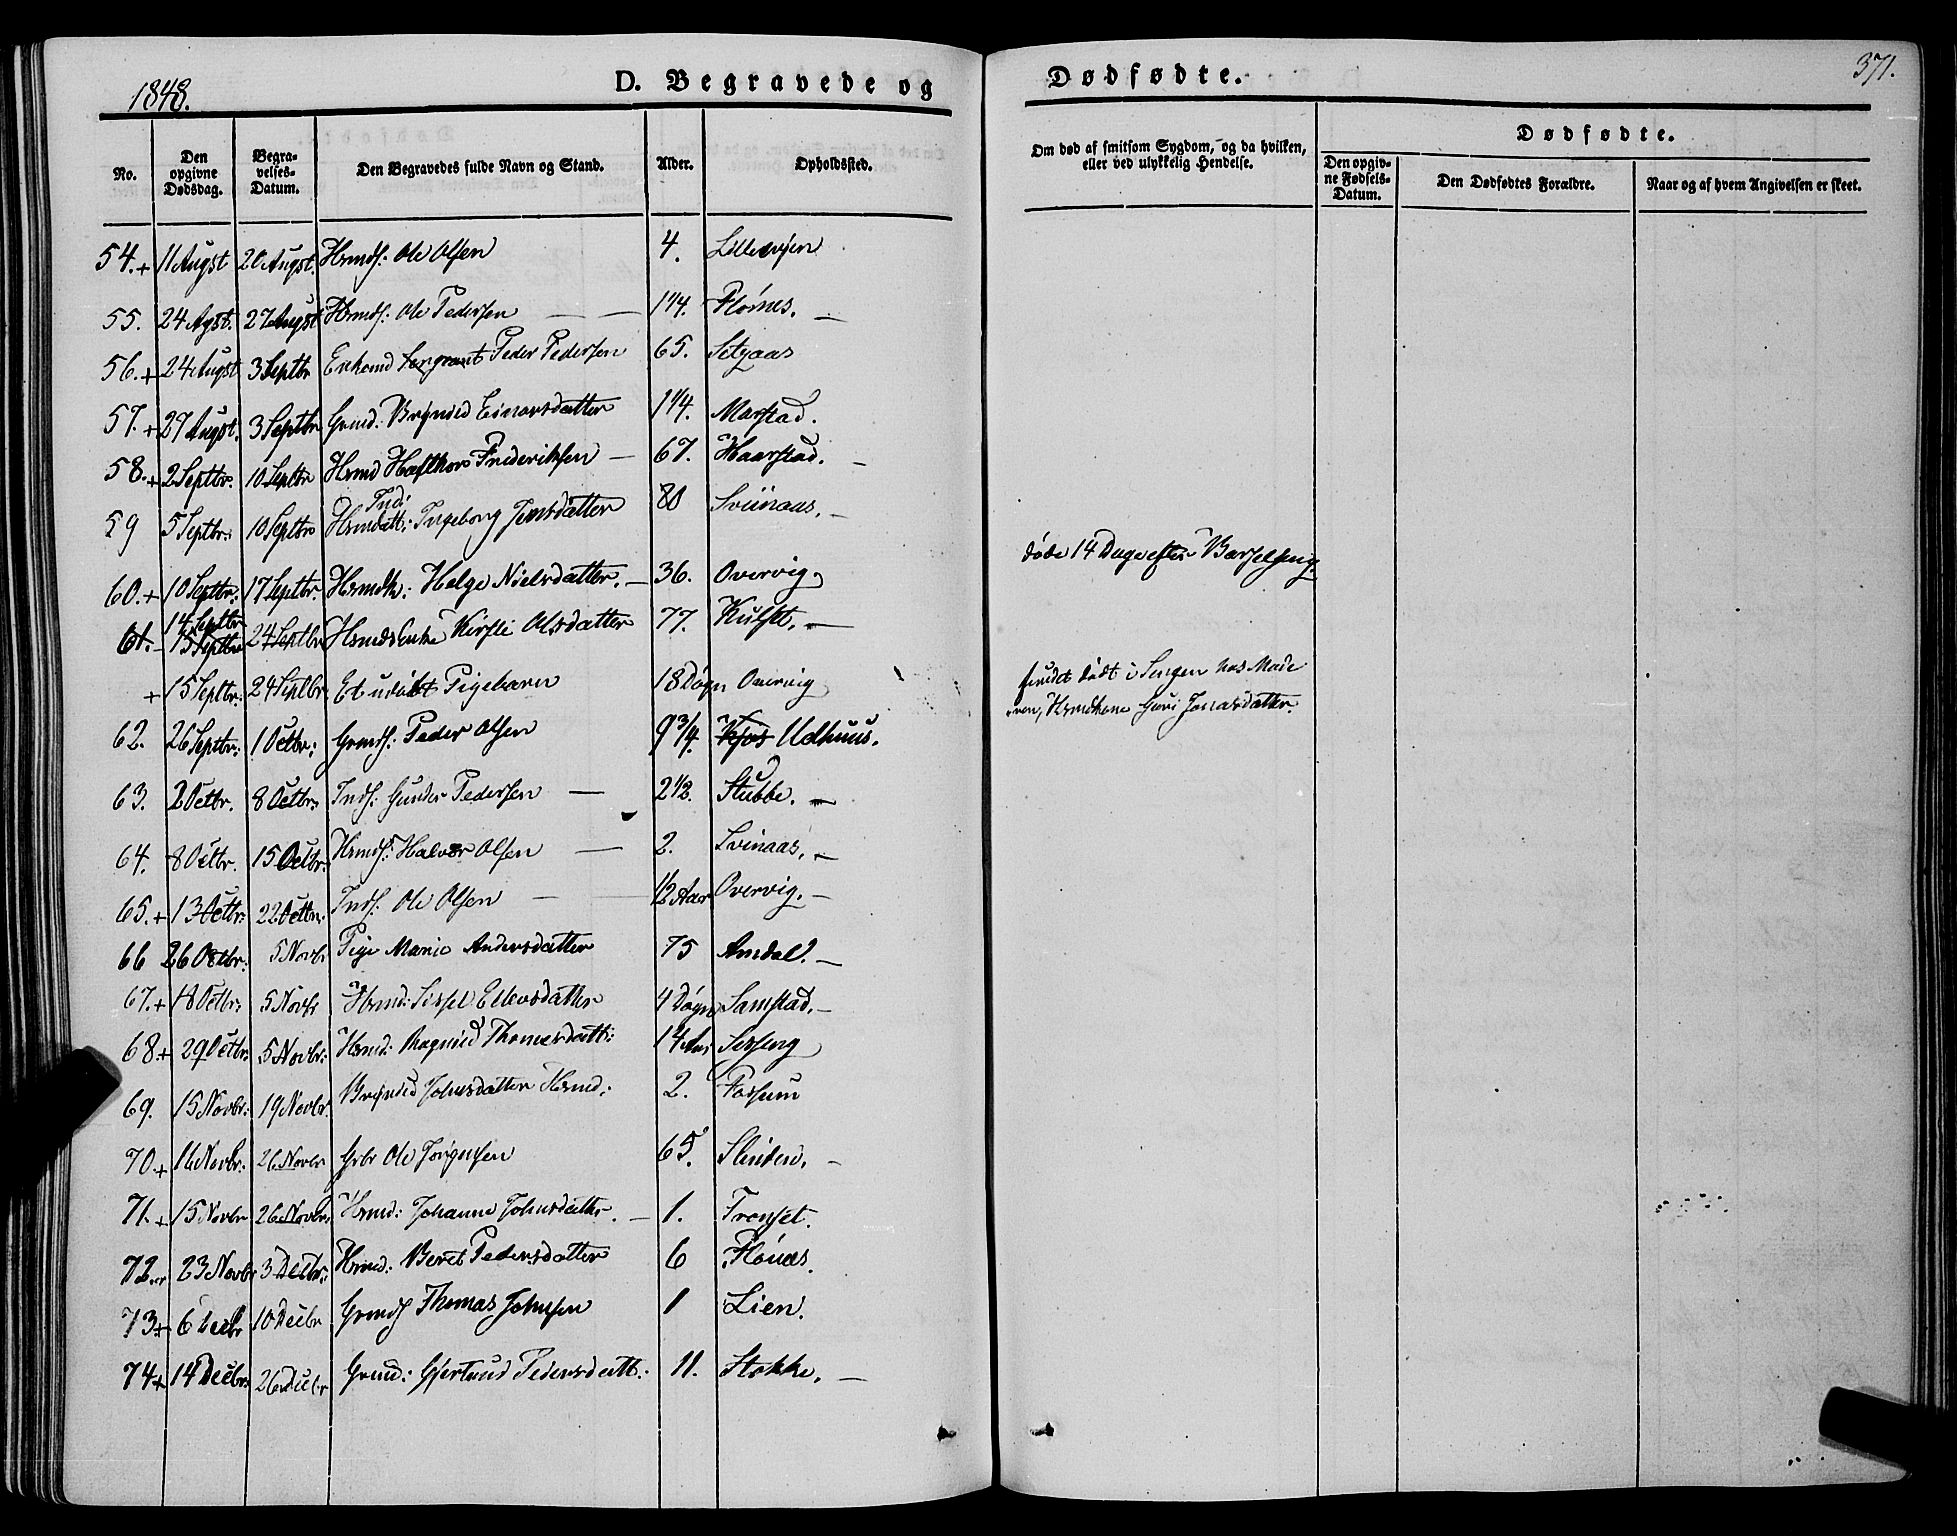 1848.
D. Begravede og
Dødfødte.
371.
No.
Den opgivne Dødsdag.
Begravelses-Datum.
Den Begravedes fulde Navn og Stand.
Alder.
Opholdssted.
Om død af smitsom Sygdom, og da hvilken, eller ved ulykkelig Hendelse.
Dødfødte.
Den opgivne Fødsels-Datum.
Den Dødfødtes Forældre.
Naar og af hvem Angivelsen er skeet.
54.+ 11 Augst 20 Augst. Hrmds: Ole Olsen 4. Lilleevjen
55. 24 Agst. 27 Augst Hrmds: Ole Pedersen — — 1 1/4. Flornes. —
56.+ 24 Augst 3 Septbr Enkemd Sergeant Peder Pedersen 65. Setsaas
57.+ 29 Augst. 3 Septbr Grmd: Brynild Einarsdatter 1 1/4. Marstad.
58.+ 2 Septbr. 10 Septbr Hrmd Hafthor Frederiksen — 67. Haarstad. —
59 5 Septbr: 10 Septbr Ind: Hrmdatt: Ingeborg Jensdatter 80 Sviinaas. —
60.+ 10 Septbr: 17 Septbr: Hrmdk: Helge Nielsdatter. — 36. Overvig. døde 14 Dage efter Barselseng.
61. 14 Septbr 15 Septbr 24 Septbr Hrmds Enke Kirsti Olsdatter 77. Kulset. —
+ 15 Septbr: 24 Septbr. Et udøbt Pigebarn 18 Døgn Overvig fundet dødt i Sengen hos Mode
ren, Hrmdkone Guri Jonasdatter.
62. 26 Septbr: 1 Octbr: Grmds: Peder Olsen 9 3/4. Kjøs Udhuus.
63. 2 Octbr. 8 Octbr: Inds: Gunder Pedersen — 2 1/2. Stubbe. —
64. 8 Octbr. 15 Octbr: Hrmds: Halvor Olsen — 2. Svinaas. —
65.+ 13 Octbr: 22 Octbr: Inds: Ole Olsen — 1/2 Aar Overvig. —
66 26 Octbr: 5 Novbr Pige Marie Andersdatter 75 Amdal. —
67.+ 18 Octbr: 5 Novbr Hrmd: Sissel Ellevsdatter 4 Døgn Samstad. —
68.+ 29 Octbr: 5 Novbr: Hrmd: Ragnild Thomasdatt: 14 Aar Sesseng
69. 15 Novbr: 19 Novbr. Brynild Johnsdatter Hrmd: 2. Fossum
70.+ 16 Novbr: 26 Novbr Gbr Ole Jørgensen 65. Slinden. —
71.+ 15 Novbr 26 Novbr. Hrmd: Johanna Johnsdatter. — 1. Tronset.
72. 23 Novbr 3 Decbr: Hrmd: Beret Pedersdatter 6 Flønæs.
73+ 6 Decbr 10 Decbr Grmds Thomas Johnsen 1 Lien.
74+ 14 Decbr: 26 Decbr Grmd: Gjertrud Pedersdatt: 11. Stokke. —